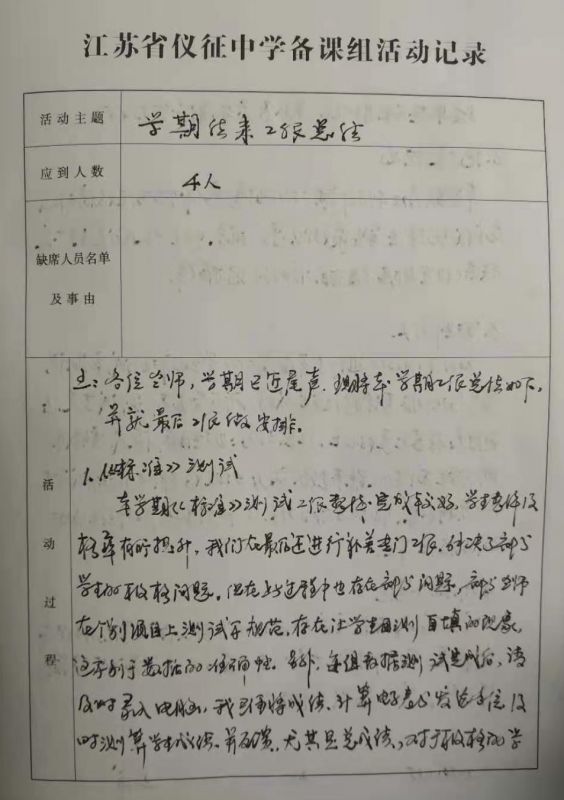 江苏省仪征中学备课组活动记录
活动主题 学期结束工作总结
应到人数 4人
缺席人员名单
及事由
活动过程
王：各位老师，学期已近尾声，现将本学期工作总结如下，
并就最后工作做安排。
1.《标准》测试
本学期《标准》测试工作整体完成较好，学生
格率有所提升，我们在最后还进行补差专门工作，解决了部分
学生的不及格问题。但在上述过程中也存在部分问题，部分老师
在个别项目上测试不规范，存在让学生自测自填的现象，
这不利于数据的准确性。另外，年组数据测试完成后，请
及时录入电脑，我已将成绩计算电子表发给各位及
时测算学生成绩。并反馈，尤其是总成绩，对于不及格的学